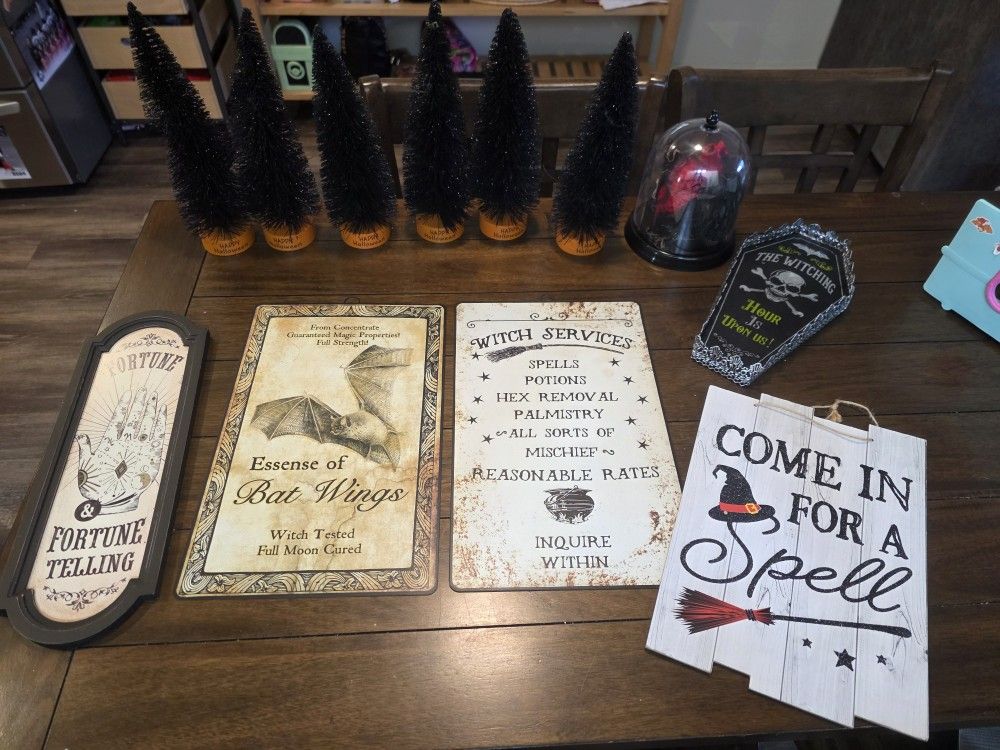 HAPPY
Halloween
HAPPY
HAPPY
Halloween
HAPPY
Halloween
HAPPY
Halloween
HAPPY
Halloween
THE WITCHING
HOUR
IS
UPON US!
FORTUNE
&
FORTUNE
TELLING
From Concentrate
Guaranteed Magic Properties!
Full Strength!
Essense of
Bat Wings
Witch Tested
Full Moon Cured
WITCH SERVICES
SPELLS
POTIONS
HEX REMOVAL
PALMISTRY
ALL SORTS OF
MISCHIEF
REASONABLE RATES
INQUIRE
WITHIN
COME IN
FOR A
Spell